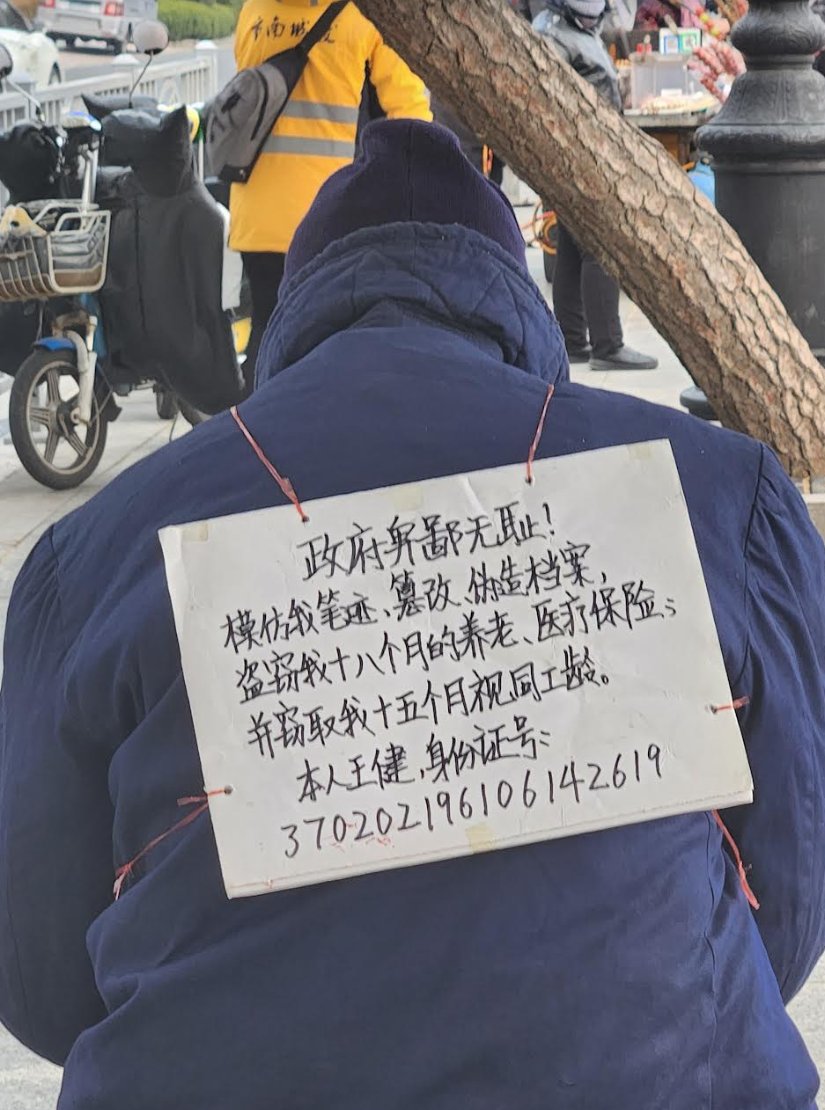 市南城
政府卑鄙无耻！
模仿我笔迹、篡改、伪造档案，
盗窃我十八个月的养老、医疗保险；
并窃取我十五个月视同工龄。
本人王健，身份证号：
370202196106142619